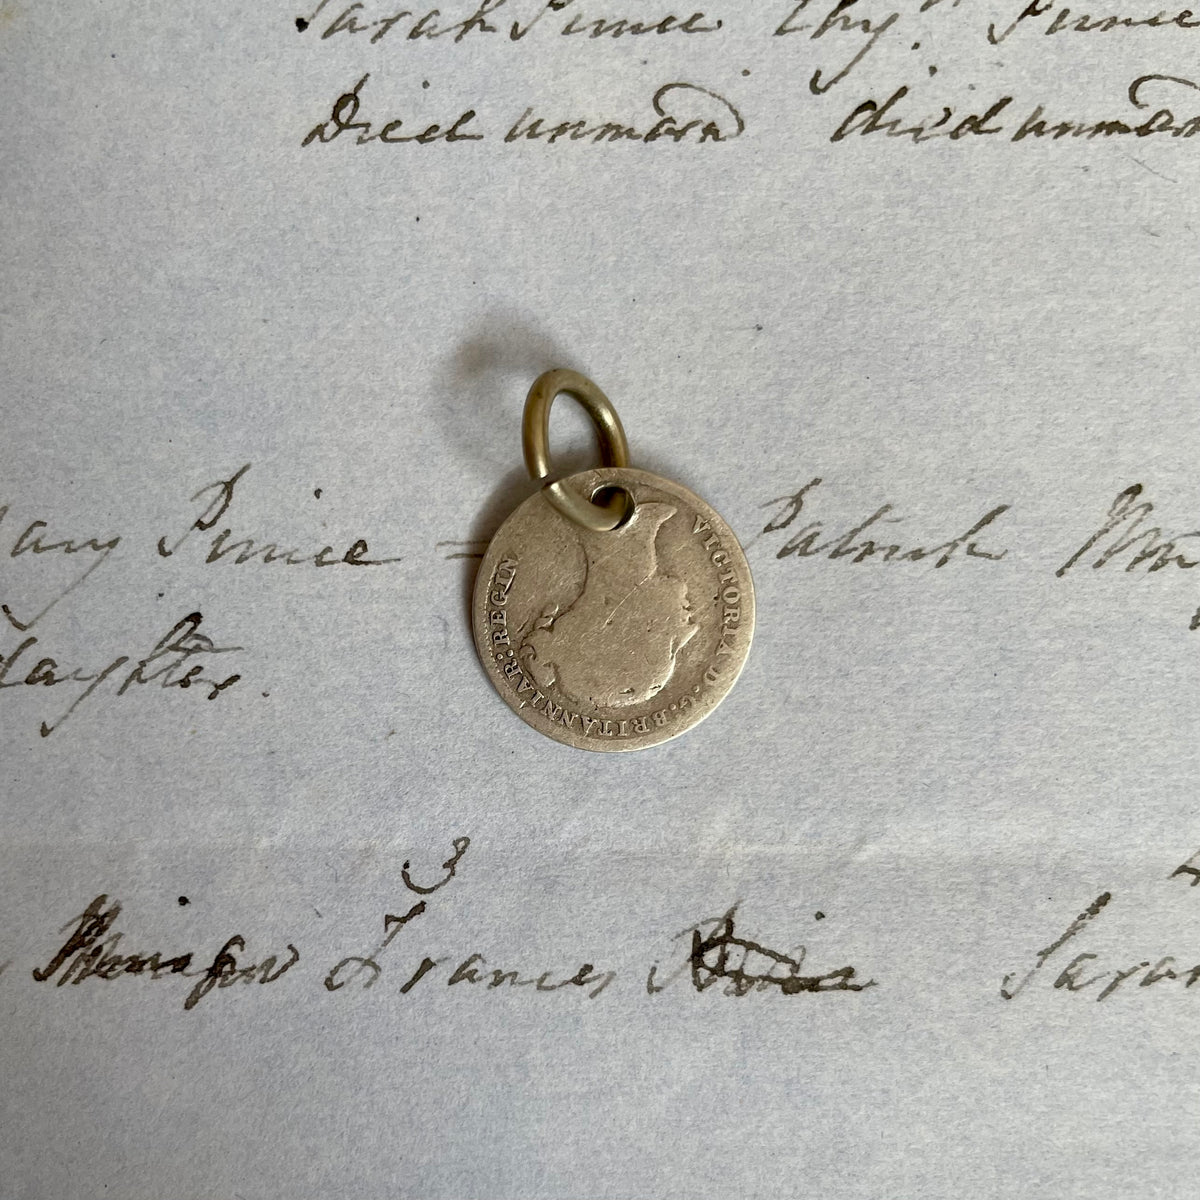 Sarah Pinnie Thos. Pinnie
Died unmard died unmard
Mary Pinnie = Patrick
daughter.
VICTORIA D: G. BRITANNIAR: REGIN
3 4
Frances Sarah